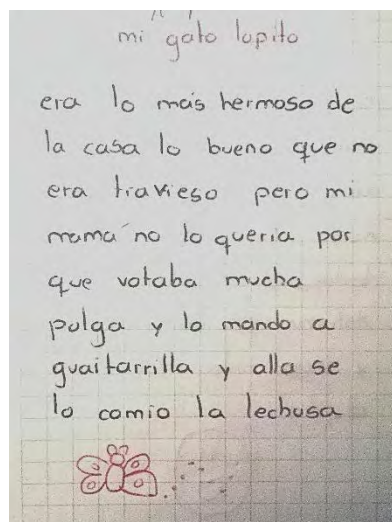 mi gato lupito
era lo mas hermoso de
la casa lo bueno que no
era travieso pero mi
mama no lo queria por
que votaba mucha
pulga y lo mando a
guaitarrilla y alla se
lo comio la lechusa